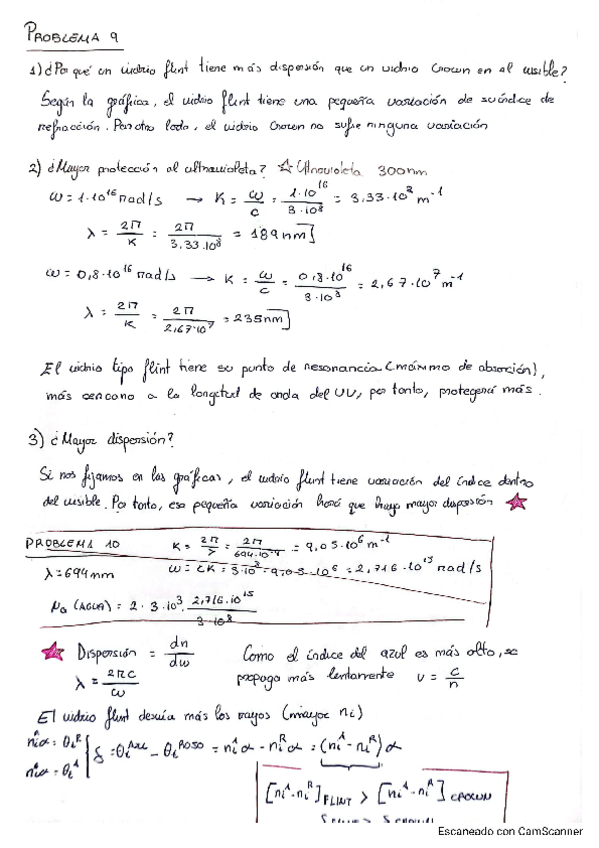 PROBLEMA 9
1) ¿Por qué un vidrio flint tiene más dispersión que un vidrio Crown en el visible?
Según la gráfica, el vidrio flint tiene una pequeña variación de su índice de
refracción. Por otro lado, el vidrio Crown no sufre ninguna variación
2) ¿Mayor protección al ultravioleta? ☆ Ultravioleta 300nm
ω = 1·10^16 rad/s → K = ω/c = 1·10^16/3·10^8 = 3,33·10^7 m^-1
λ = 2π/K = 2π/3,33·10^8 = 189nm]
ω = 0,8·10^16 rad/s → K = ω/c = 0,8·10^16/3·10^8 = 2,67·10^7 m^-1
λ = 2π/K = 2π/2,67·10^7 = 235nm]
El vidrio tipo flint tiene su punto de resonancia (máximo de absorción),
más cercano a la longitud de onda del UV, por tanto, protegerá más.
3) ¿Mayor dispersión?
Si nos fijamos en las gráficas, el vidrio flint tiene variación del índice dentro
del visible. Por tanto, esa pequeña variación hará que haya mayor dispersión ★
PROBLEMA 10 K = 2π/λ = 2π/694·10^-9 = 9,05·10^6 m^-1
λ = 694nm ω = CK = 3·10^8·9,05·10^6 = 2,716·10^15 rad/s
(AGUA) = 2·3·10^3·2,716·10^15/3·10^8
★ Dispersión = dn/dω Como el índice del azul es más alto, se
λ = 2πc/ω propaga más lentamente v = c/n
El vidrio flint desvía más los rayos (mayor ni)
ni^R α = θt^R
ni^A α = θt^A } δ = θt^AZUL - θt^ROJO = ni^A α - ni^R α = (ni^A - ni^R) α
[ni^A - ni^R] FLINT > [ni^A - ni^R] CROWN
Escaneado con CamScanner